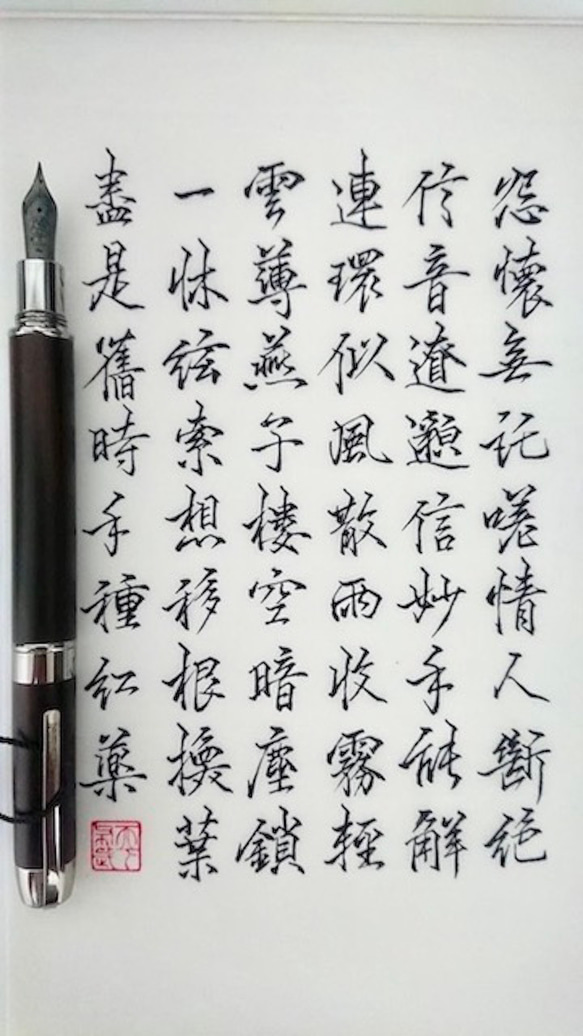 怨懷無託嗟情人斷絕
信音遼邈信妙手能解
連環似風散雨收霧輕
雲薄燕子樓空暗塵鎖
一牀絃索想移根換葉
盡是舊時手種紅藥